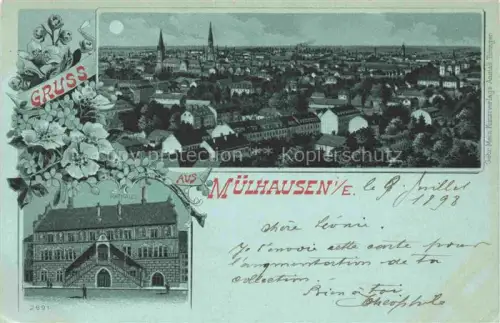 GRUSS
AUS
MÜLHAUSEN i/E.
le 9 Juillet
1898
Chère Léonie.
Je t'envoie cette carte pour
l'augmentation de ta
collection.
Bien à toi
Théophile